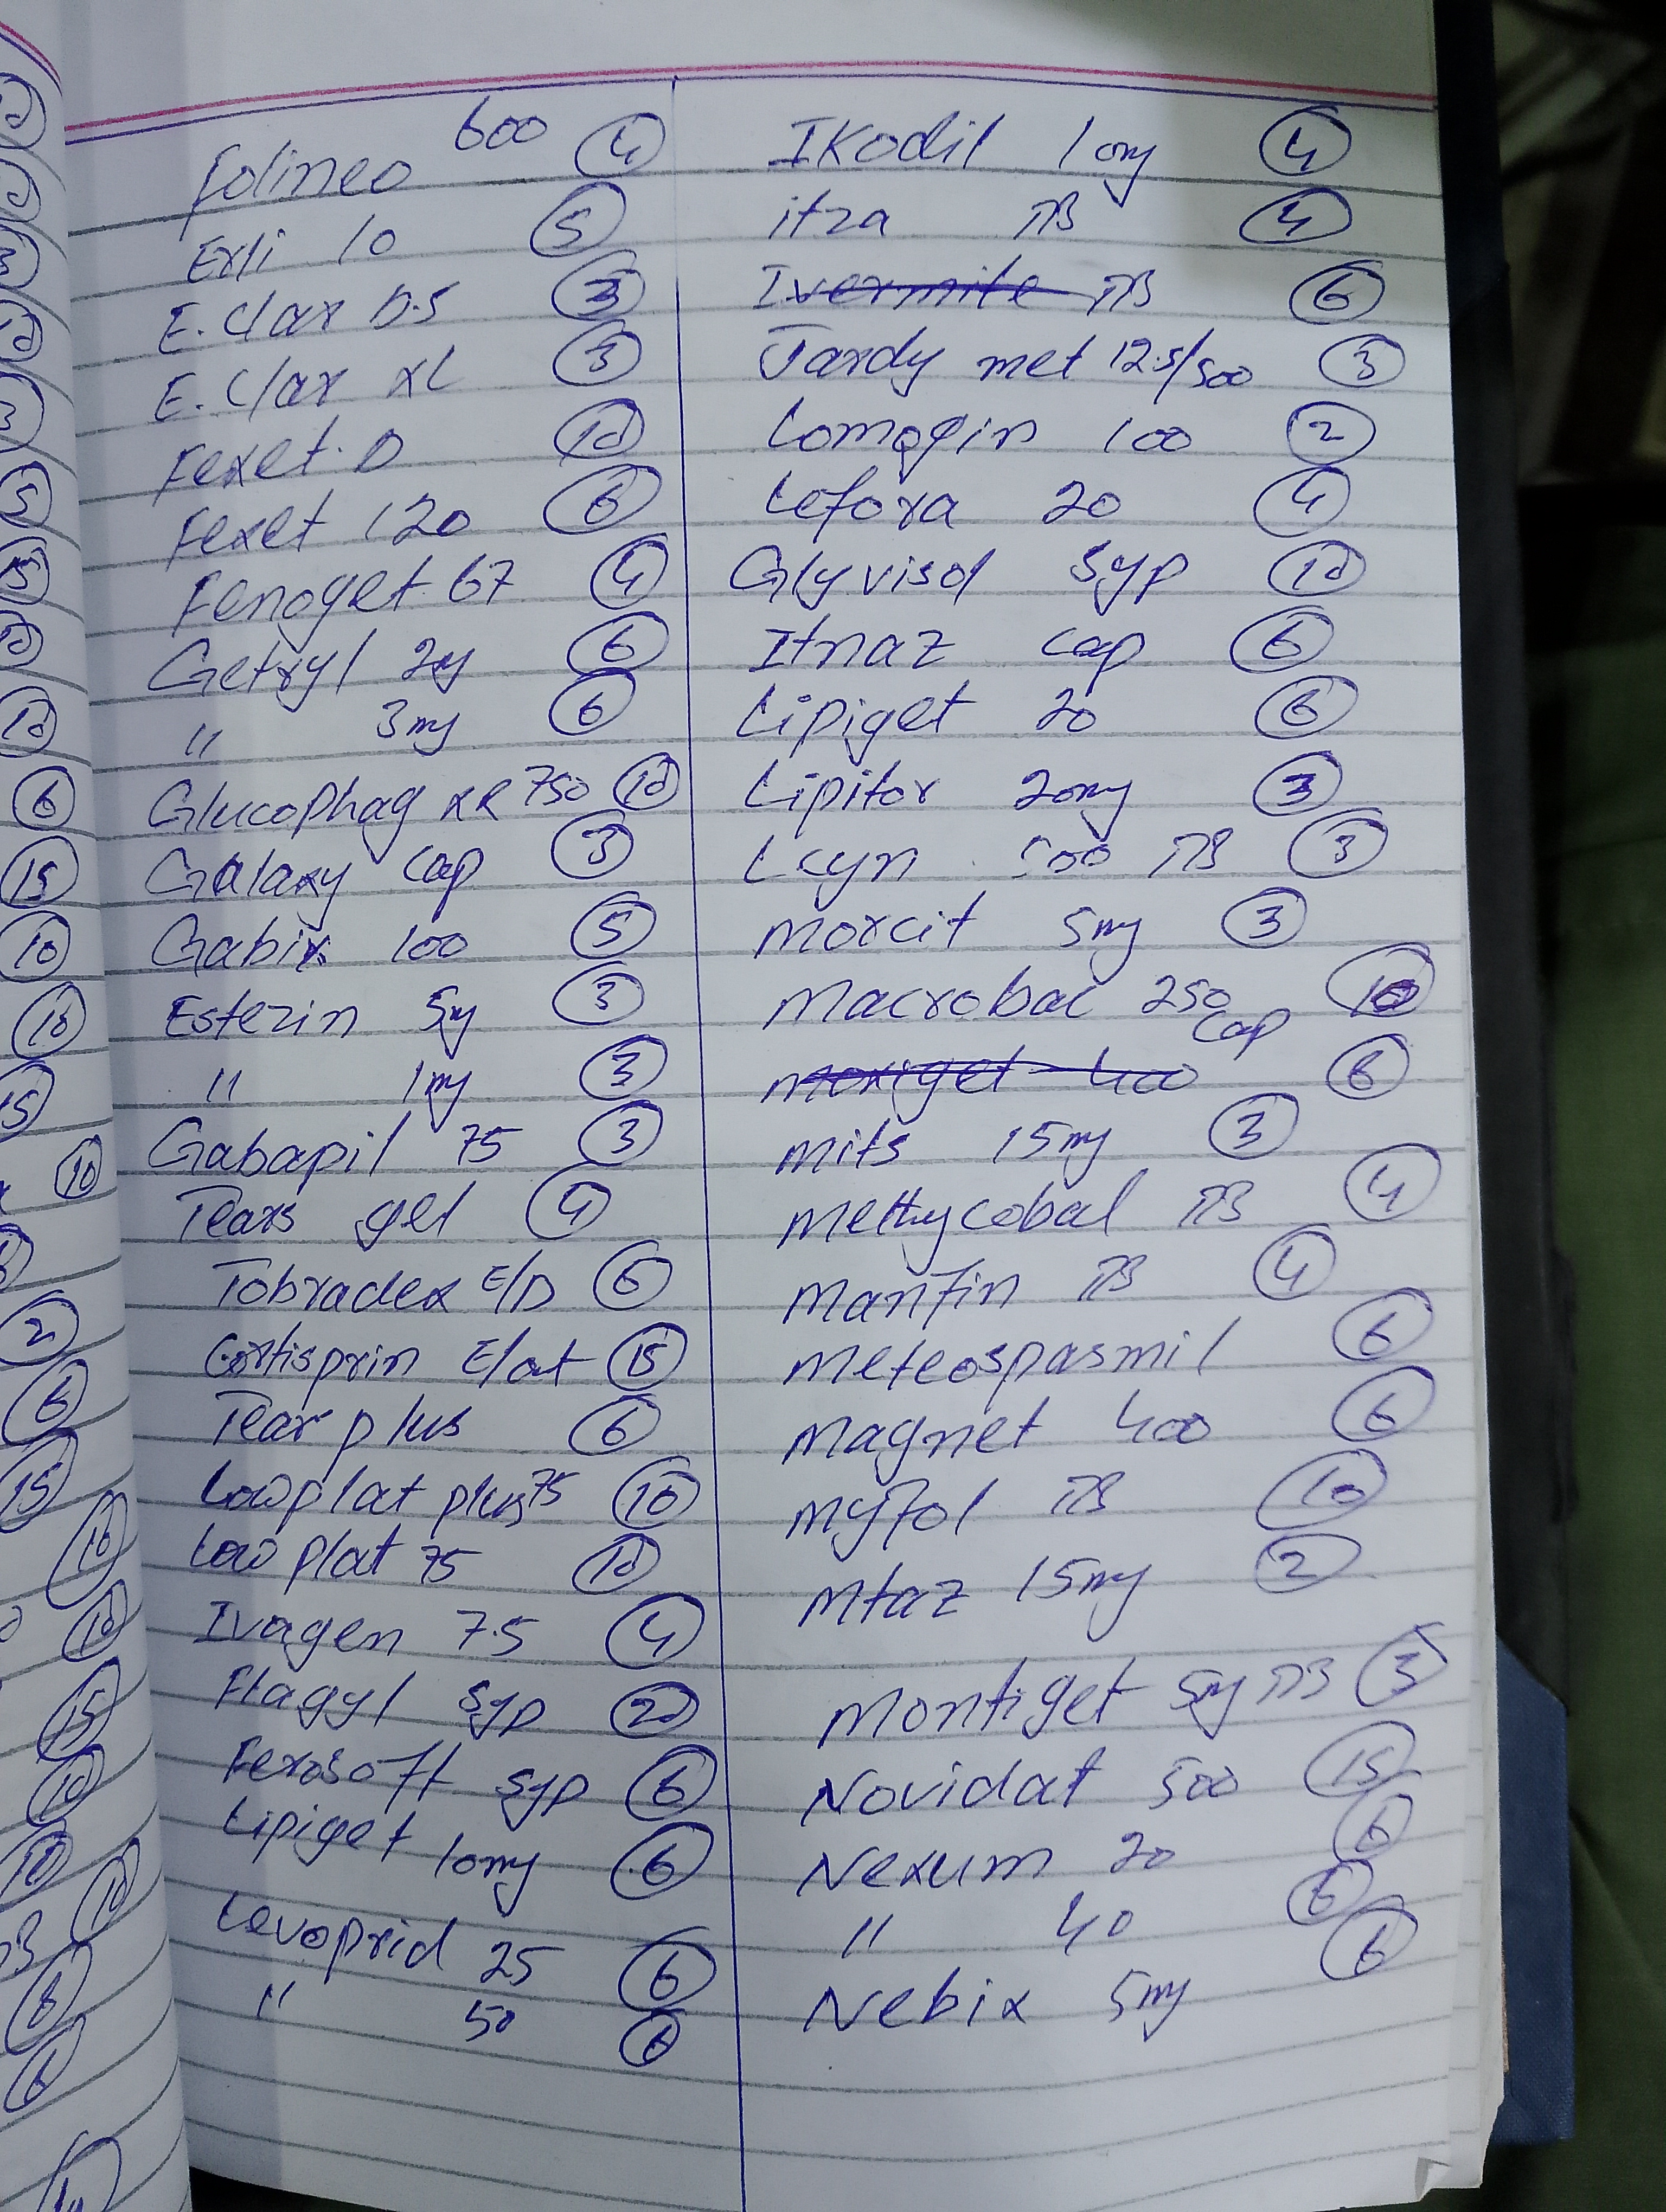 Folineo 600 4
Exli 10 5
E. Clax D.S 3
E. Clax XL 3
Fexet. D 10
Fexet 120 6
Fenoget 67 4
Getryl 2mg 6
" 3mg 6
Glucophag XR 750 10
Galaxy Cap 3
Gabix 100 5
Estezin 5mg 3
" 1mg 3
Gabapil 75 3
Tears gel 4
Tobradex E/D 6
Cortisprin E/ot 15
Tear plus 6
Lowplat plus 75 10
Low plat 75 10
Ivagen 7.5 4
Flagyl Syp 20
Ferosoft Syp 6
Lipiget 10mg 6
Levoprid 25 6
" 50 6
IKodil 10mg 4
itza TB 4
Ivermite TB 6
Jardy met 12.5/500 3
Lomogin 100 2
Lefora 20 4
Glyvisol Syp 10
Itnaz Cap 6
Lipiget 20 6
Lipitor 20mg 3
Lcyn 500 TB 3
Morcit 5mg 3
Macrobac 250 Cap 10
Moxiget 400 6
Mits 15mg 3
Methycobal TB 4
Manfin TB 4
Meteospasmil 6
Magnet 400 6
Myfol TB 10
Mtaz 15mg 2
Montiget 5mg TB 3
Novidat 500 15
Nexum 20 6
" 40 6
Nebix 5mg 6